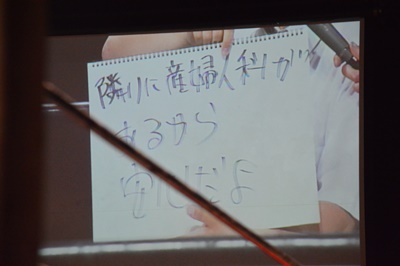 隣りに産婦人科が
あるから
安心だよ